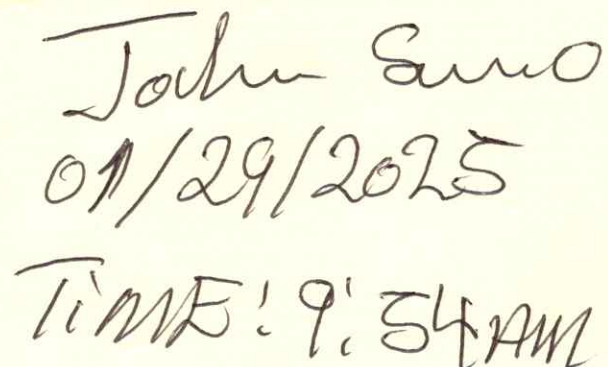 John
01/29/2025
TiME: 9:54 AM